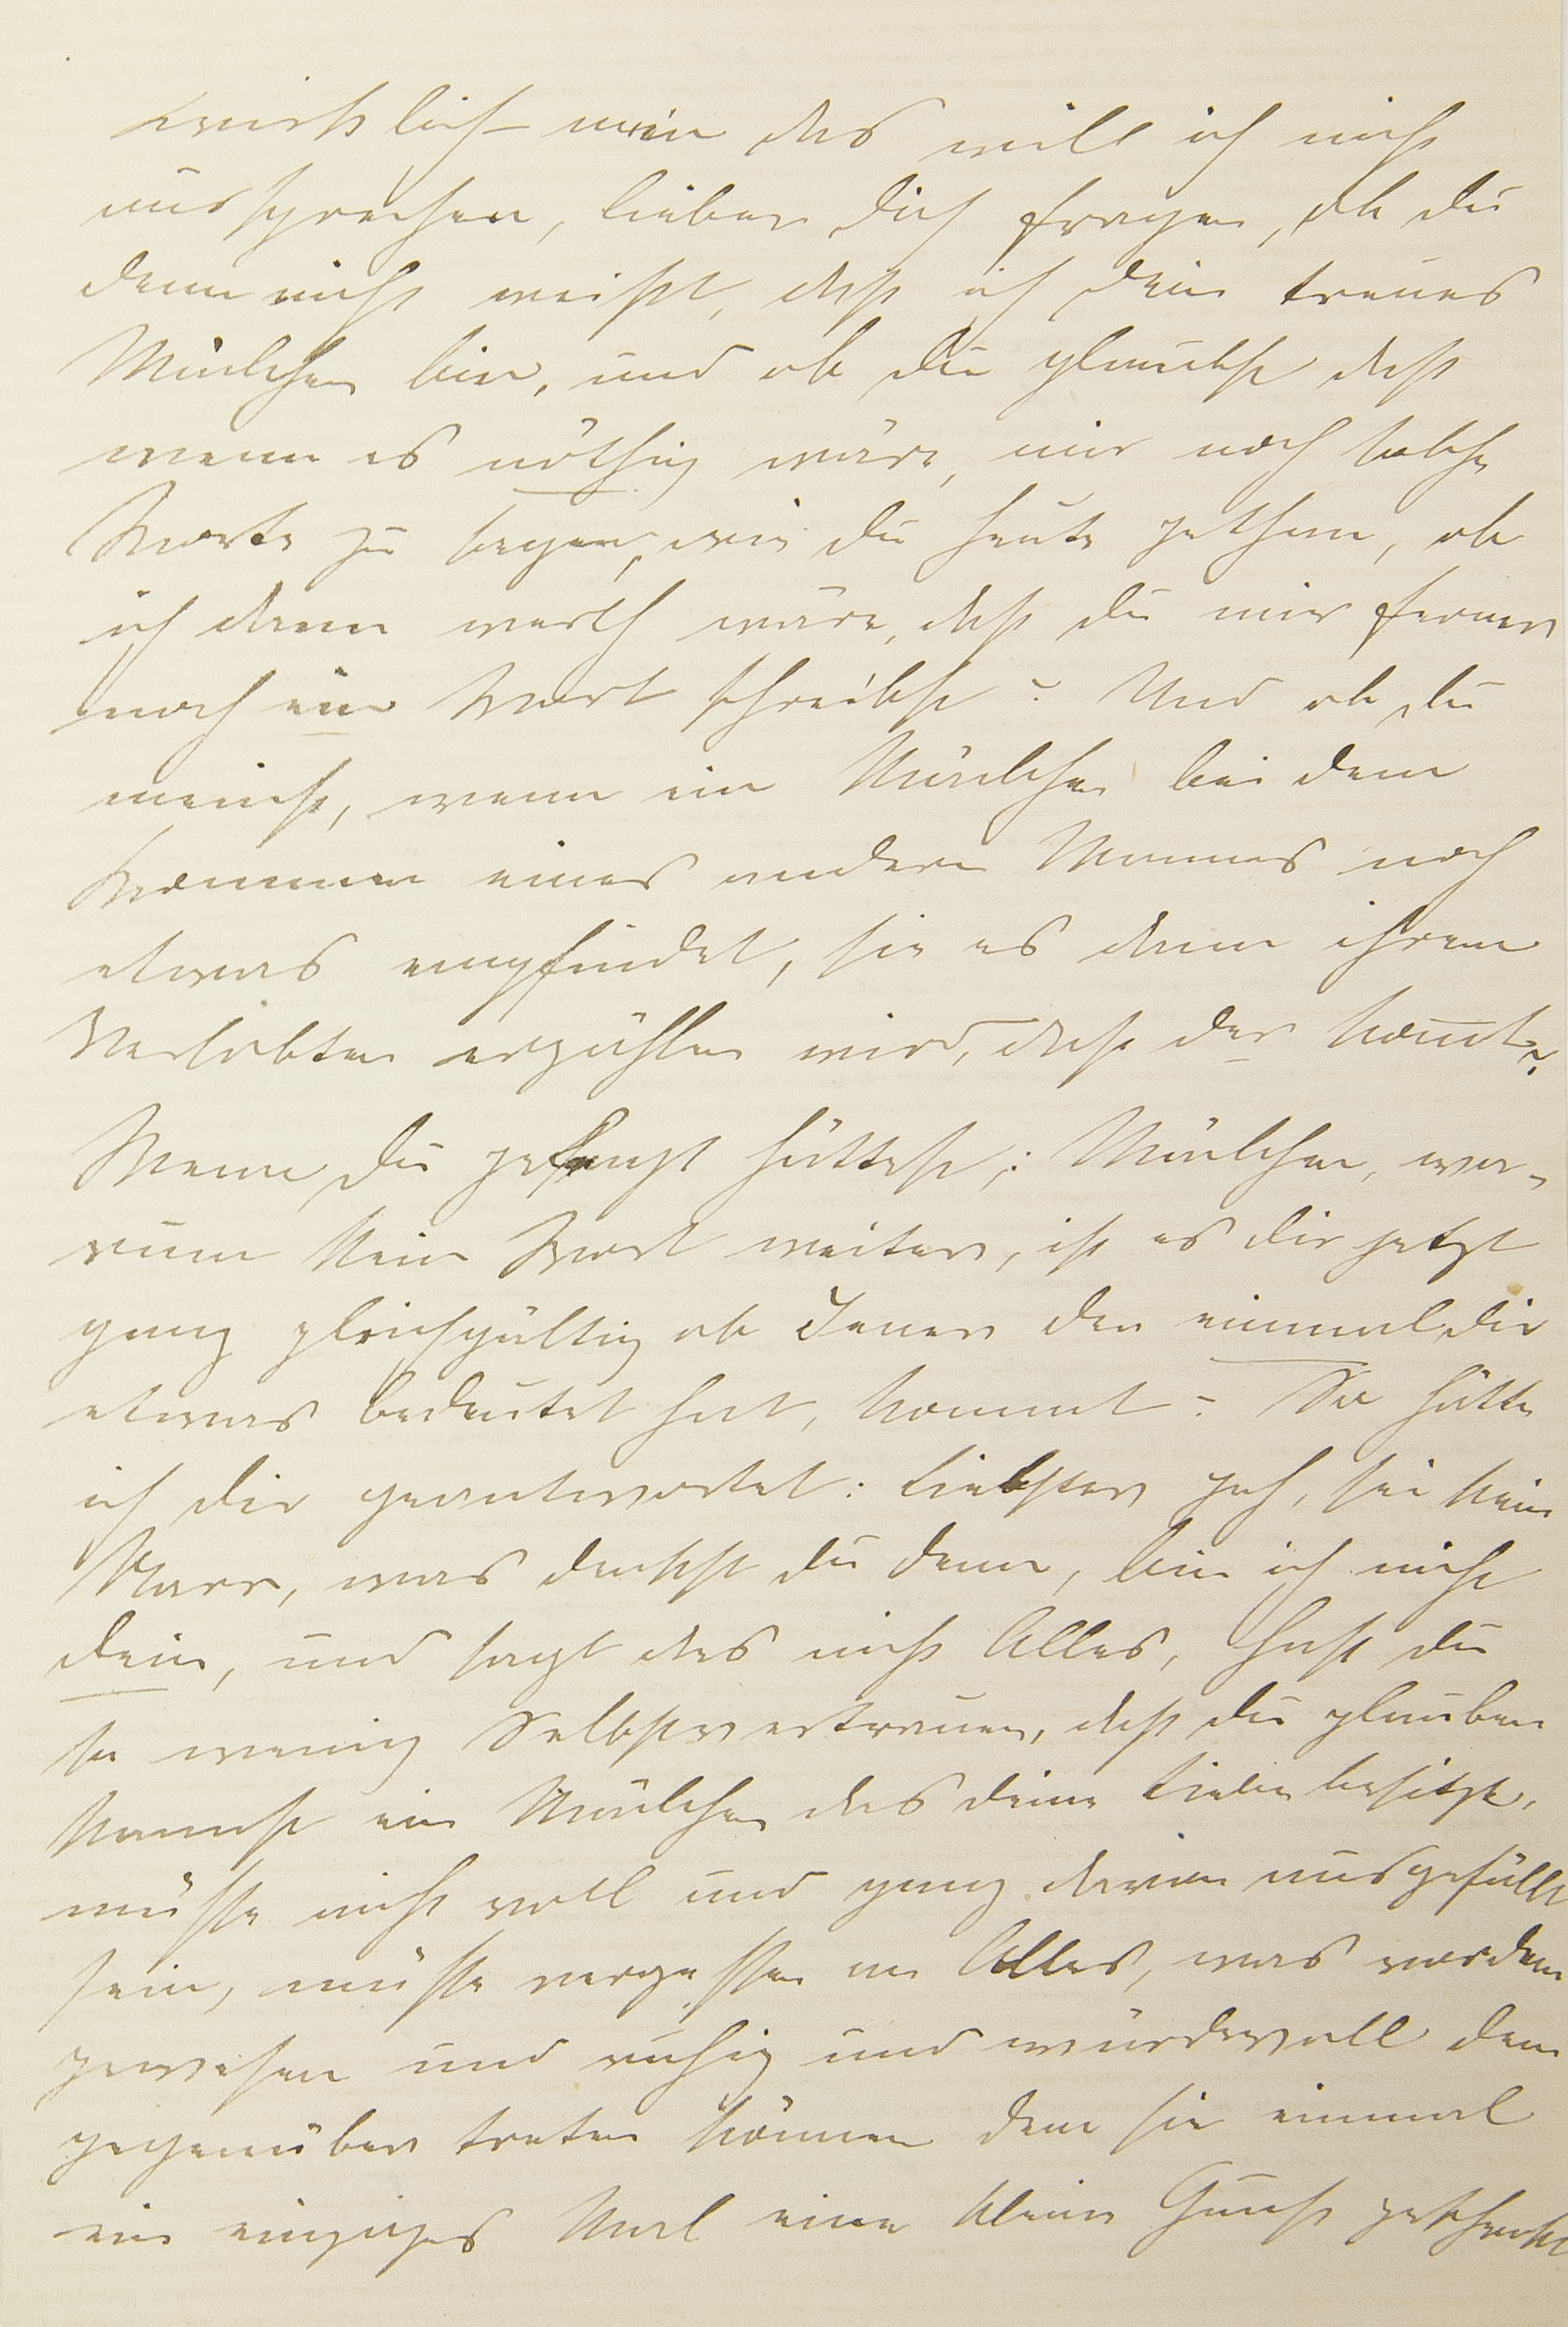 nein das will ich nicht
aussprechen, lieber dich fragen, ob du
denn nicht weißt, daß ich dein treues
Mädchen bin, und ob du glaubst daß
wenn es nöthig wäre, mir noch solche
Worte zu sagen, wie du heute gethan, ob
ich denn werth wäre, daß du mir ferner
noch ein Wort schreibst? Und ob du
meinst, wenn ein Mädchen bei dem
Kommen eines andern Mannes noch
etwas empfindet, sie es dann ihrem
Verlobten erzählen wird, daß der kommt?
Wenn du gesagt hättest: Mädchen, wa-
rum kein Wort weiter, ist es dir jetzt
ganz gleichgültig ob Jener der einmal dir
etwas bedeutet hat, kommt? So hätte
ich dir geantwortet: Liebster geh, sei kein
Narr, was denkst du denn, bin ich nicht
dein, und sagt das nicht Alles, hast du
so wenig Selbstvertrauen, daß du glauben
kannst ein Mädchen das deine Liebe besitzt,
müsse nicht voll und ganz davon ausgefüllt
sein, müsse vergessen an Alles, was vordem
gewesen und ruhig und würdevoll dem
gegenüber treten können dem sie einmal
ein einziges Mal eine kleine Gunst geschenkt